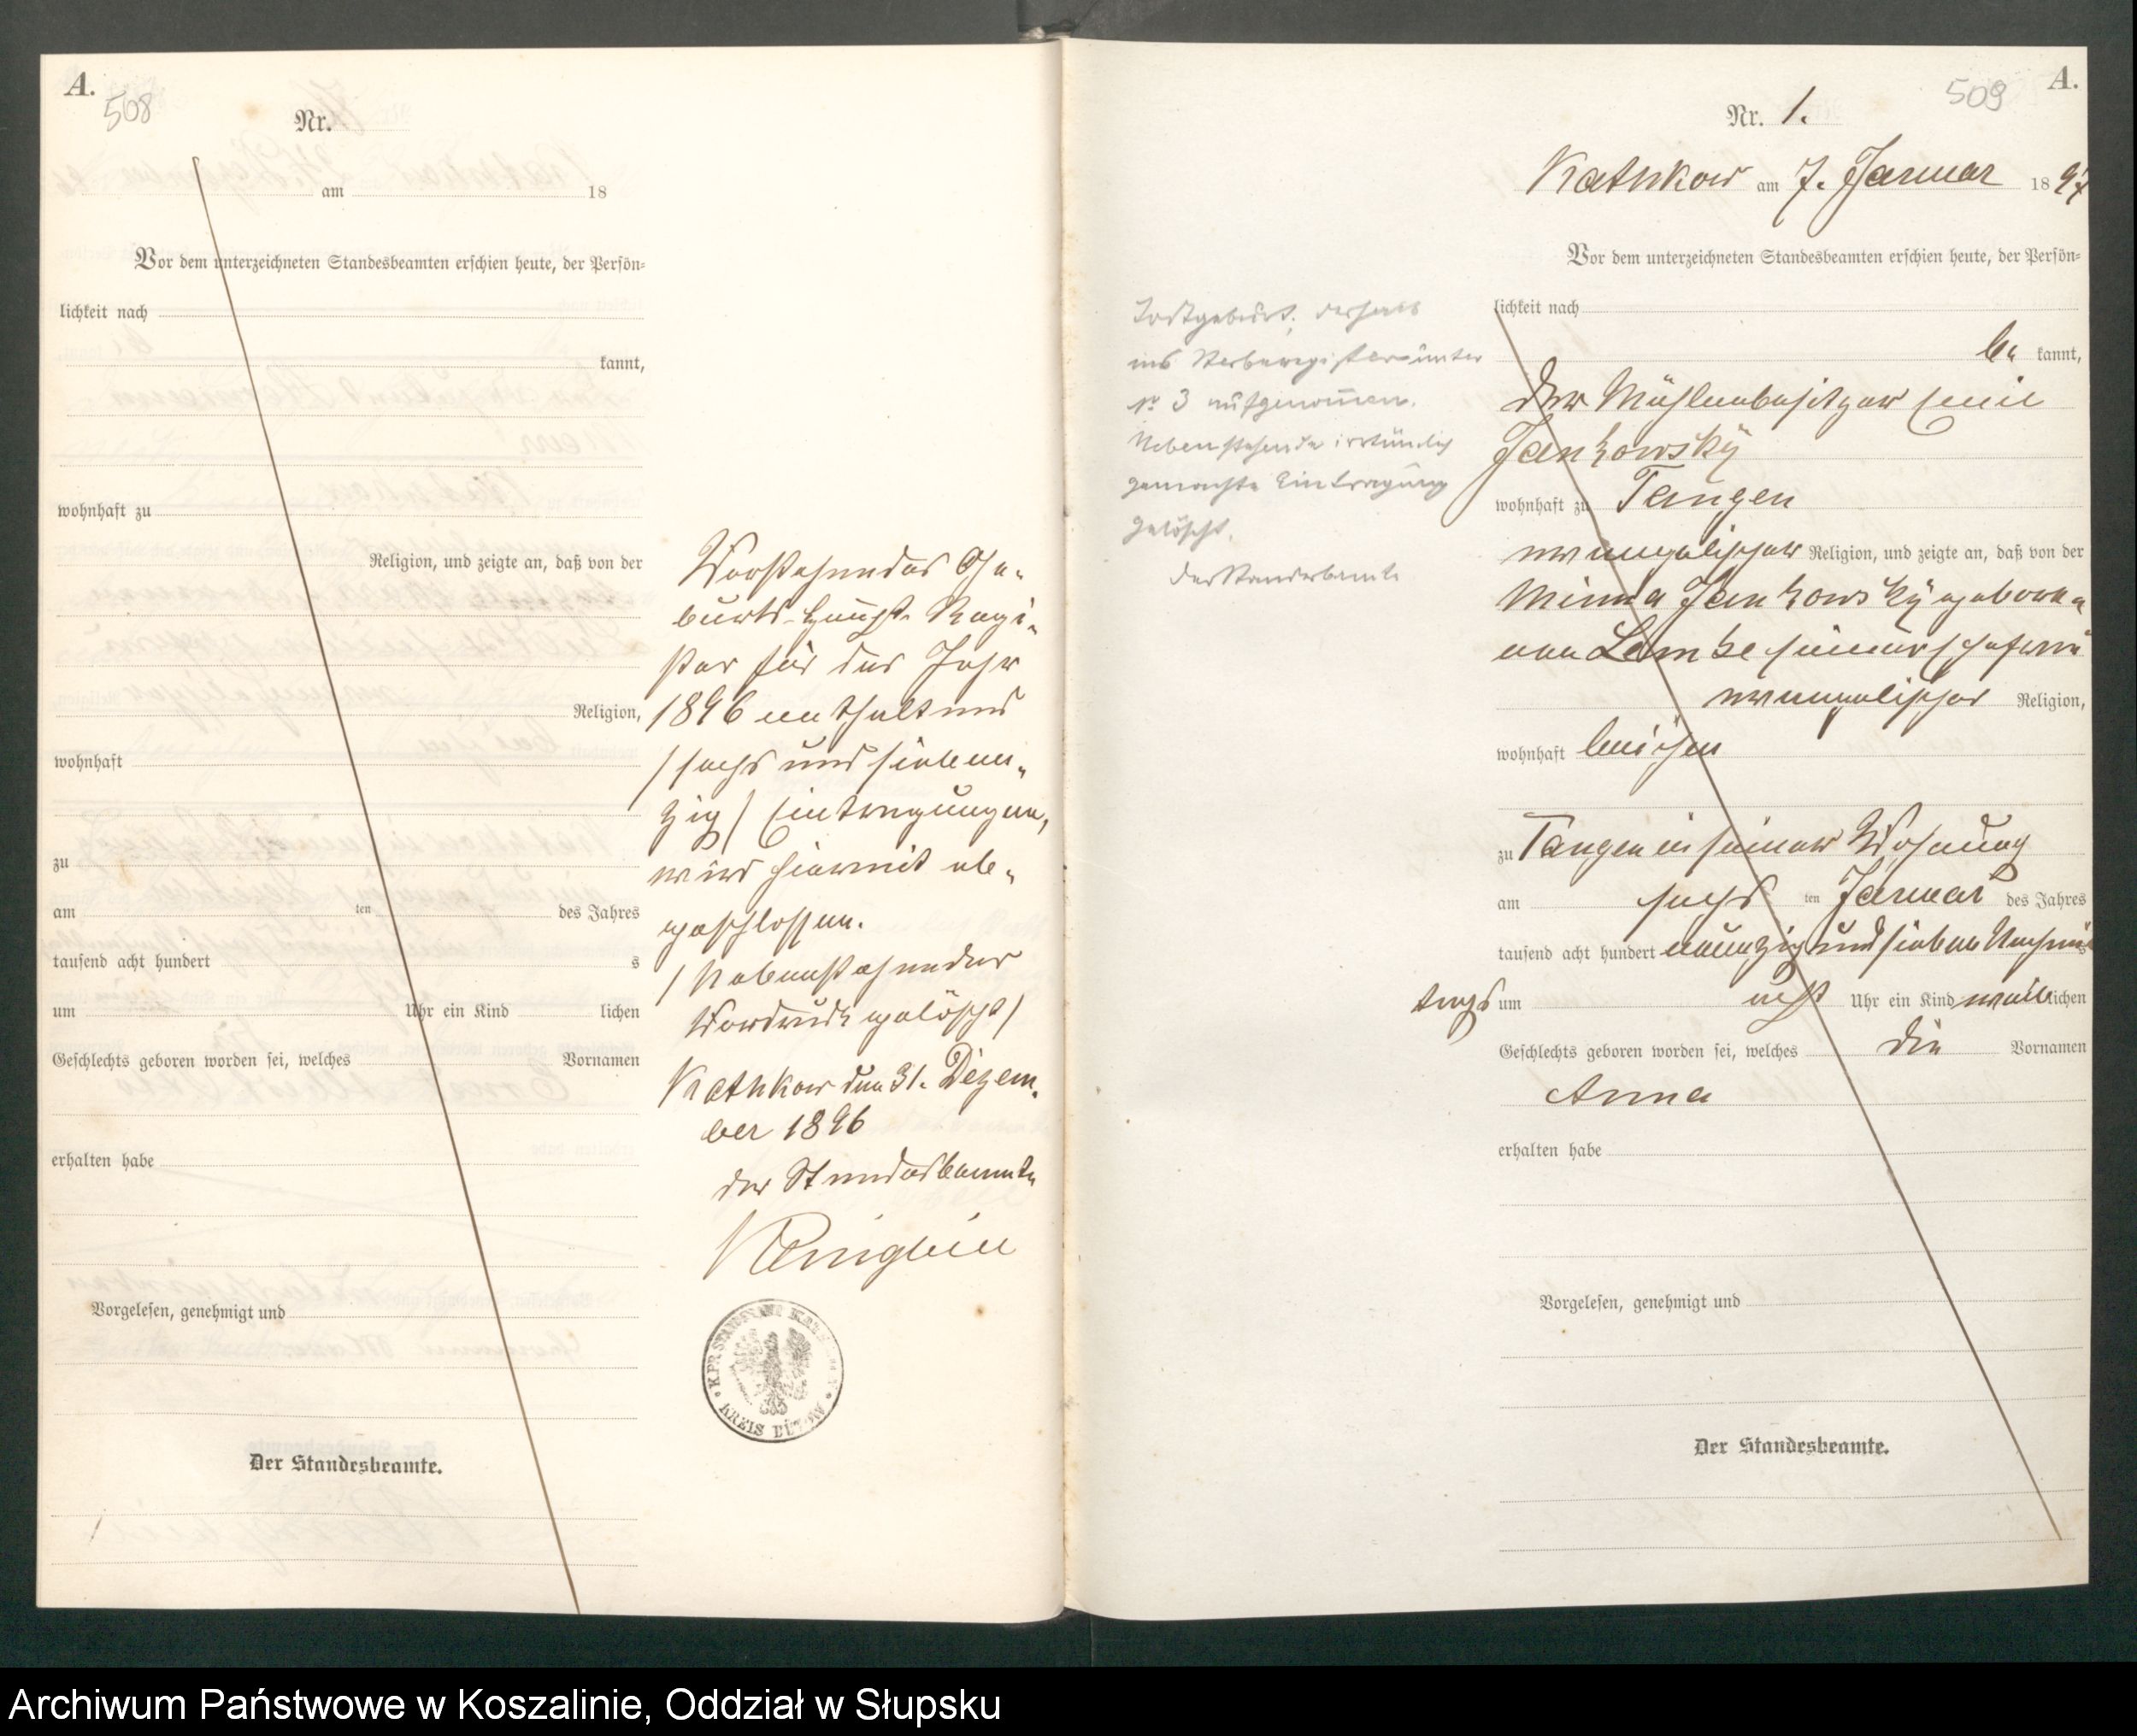 A.
508
Nr.
am 18
Vor dem unterzeichneten Standesbeamten erschien heute, der Persön-
lichkeit nach
kannt,
wohnhaft zu
Religion, und zeigte an, daß von der
Religion,
wohnhaft
zu
am ten des Jahres
tausend acht hundert s
um Uhr ein Kind lichen
Geschlechts geboren worden sei, welches Vornamen
erhalten habe
Vorgelesen, genehmigt und
Der Standesbeamte.
Vorstehendes Ge-
burts-Haupt-Regi-
ster für das Jahr
1896 enthaltend
/sechs und sieben-
zig/ Eintragungen,
wird hiermit ab-
geschlossen.
/Nebenstehender
Vordruck gelöscht/
Kathkow den 31. Dezem-
ber 1896
der Standesbeamte
KREIS BÜTOW
A.
509
Nr. 1.
Kathkow am 7. Januar 1897
Vor dem unterzeichneten Standesbeamten erschien heute, der Persön-
lichkeit nach
be kannt,
der Mühlenbesitzer Emil
Jankowsky
wohnhaft zu Tangen
evangelischer Religion, und zeigte an, daß von der
Minna Jankowsky gebore-
nen Lemke seiner Ehefrau
evangelischer Religion,
wohnhaft bei ihm
zu Tangen in seiner Wohnung
am sechs ten Januar des Jahres
tausend acht hundert neunzig und sieben Nachmit
tags um acht Uhr ein Kind weiblichen
Geschlechts geboren worden sei, welches die Vornamen
Anna
erhalten habe
Vorgelesen, genehmigt und
Der Standesbeamte.
Todtgeburt, deshalb
ins Sterberegister unter
No 3 aufgenommen.
Nebenstehende irrtümlich
gemachte Eintragung
gelöscht.
Der Standesbeamte
Archiwum Państwowe w Koszalinie, Oddział w Słupsku